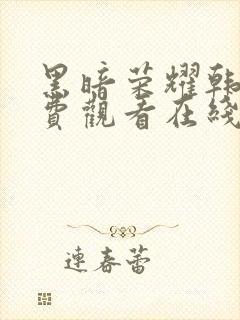 黑暗荣耀韩
費觀看在綫
連春蕾